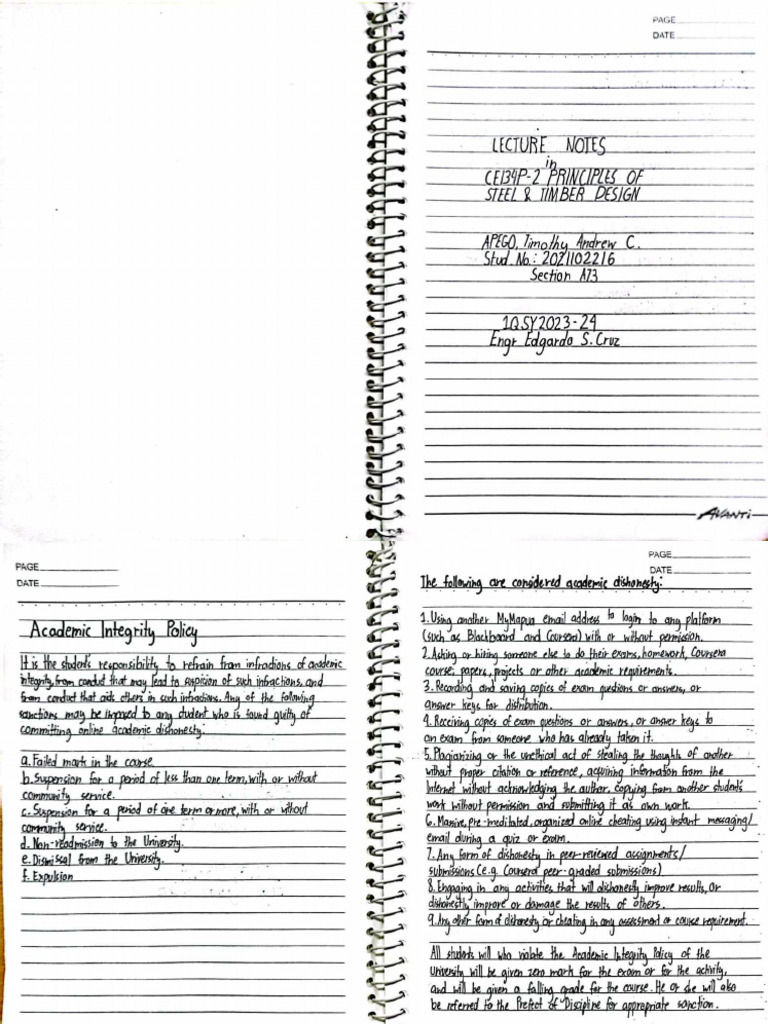 PAGE
DATE
LECTURE NOTES
in
CE134P-2 PRINCIPLES OF
STEEL & TIMBER DESIGN
APEGO, Timothy Andrew C.
Stud. No.: 2021102216
Section A73
1Q SY2023-24
Engr Edgardo S. Cruz
AVANTi
PAGE
DATE
Academic Integrity Policy
It is the student's responsibility to refrain from infractions of academic
integrity, from conduct that may lead to suspicion of such infractions, and
from conduct that aids others in such infractions. Any of the following
sanctions may be imposed to any student who is found guilty of
committing online academic dishonesty:
a. Failed mark in the course
b. Suspension for a period of less than one term, with or without
community service.
c. Suspension for a period of one term or more, with or without
community service.
d. Non-readmission to the University.
e. Dismissal from the University.
f. Expulsion
PAGE
DATE
The following are considered academic dishonesty:
1. Using another MyMapua email address to login to any platform
(such as Blackboard and Coursera) with or without permission.
2. Asking or hiring someone else to do their exams, homework, Coursera
course, papers, projects or other academic requirements.
3. Recording and saving copies of exam questions or answers, or
answer keys for distribution.
4. Receiving copies of exam questions or answers, or answer keys to
an exam from someone who has already taken it.
5. Plagiarizing or the unethical act of stealing the thoughts of another
without proper citation or reference, acquiring information from the
Internet without acknowledging the author, copying from another student's
work without permission and submitting it as own work.
6. Massive, pre-meditated, organized online cheating using instant messaging/
email during a quiz or exam.
7. Any form of dishonesty in peer-reviewed assignments/
submissions (e.g. Coursera peer-graded submissions)
8. Engaging in any activities that will dishonestly improve results, or
dishonestly improve or damage the results of others.
9. Any other form of dishonesty or cheating in any assessment or course requirement.
All students will who violate the Academic Integrity Policy of the
University will be given zero mark for the exam or for the activity,
and will be given a failing grade for the course. He or she will also
be referred to the Prefect of Discipline for appropriate sanction.